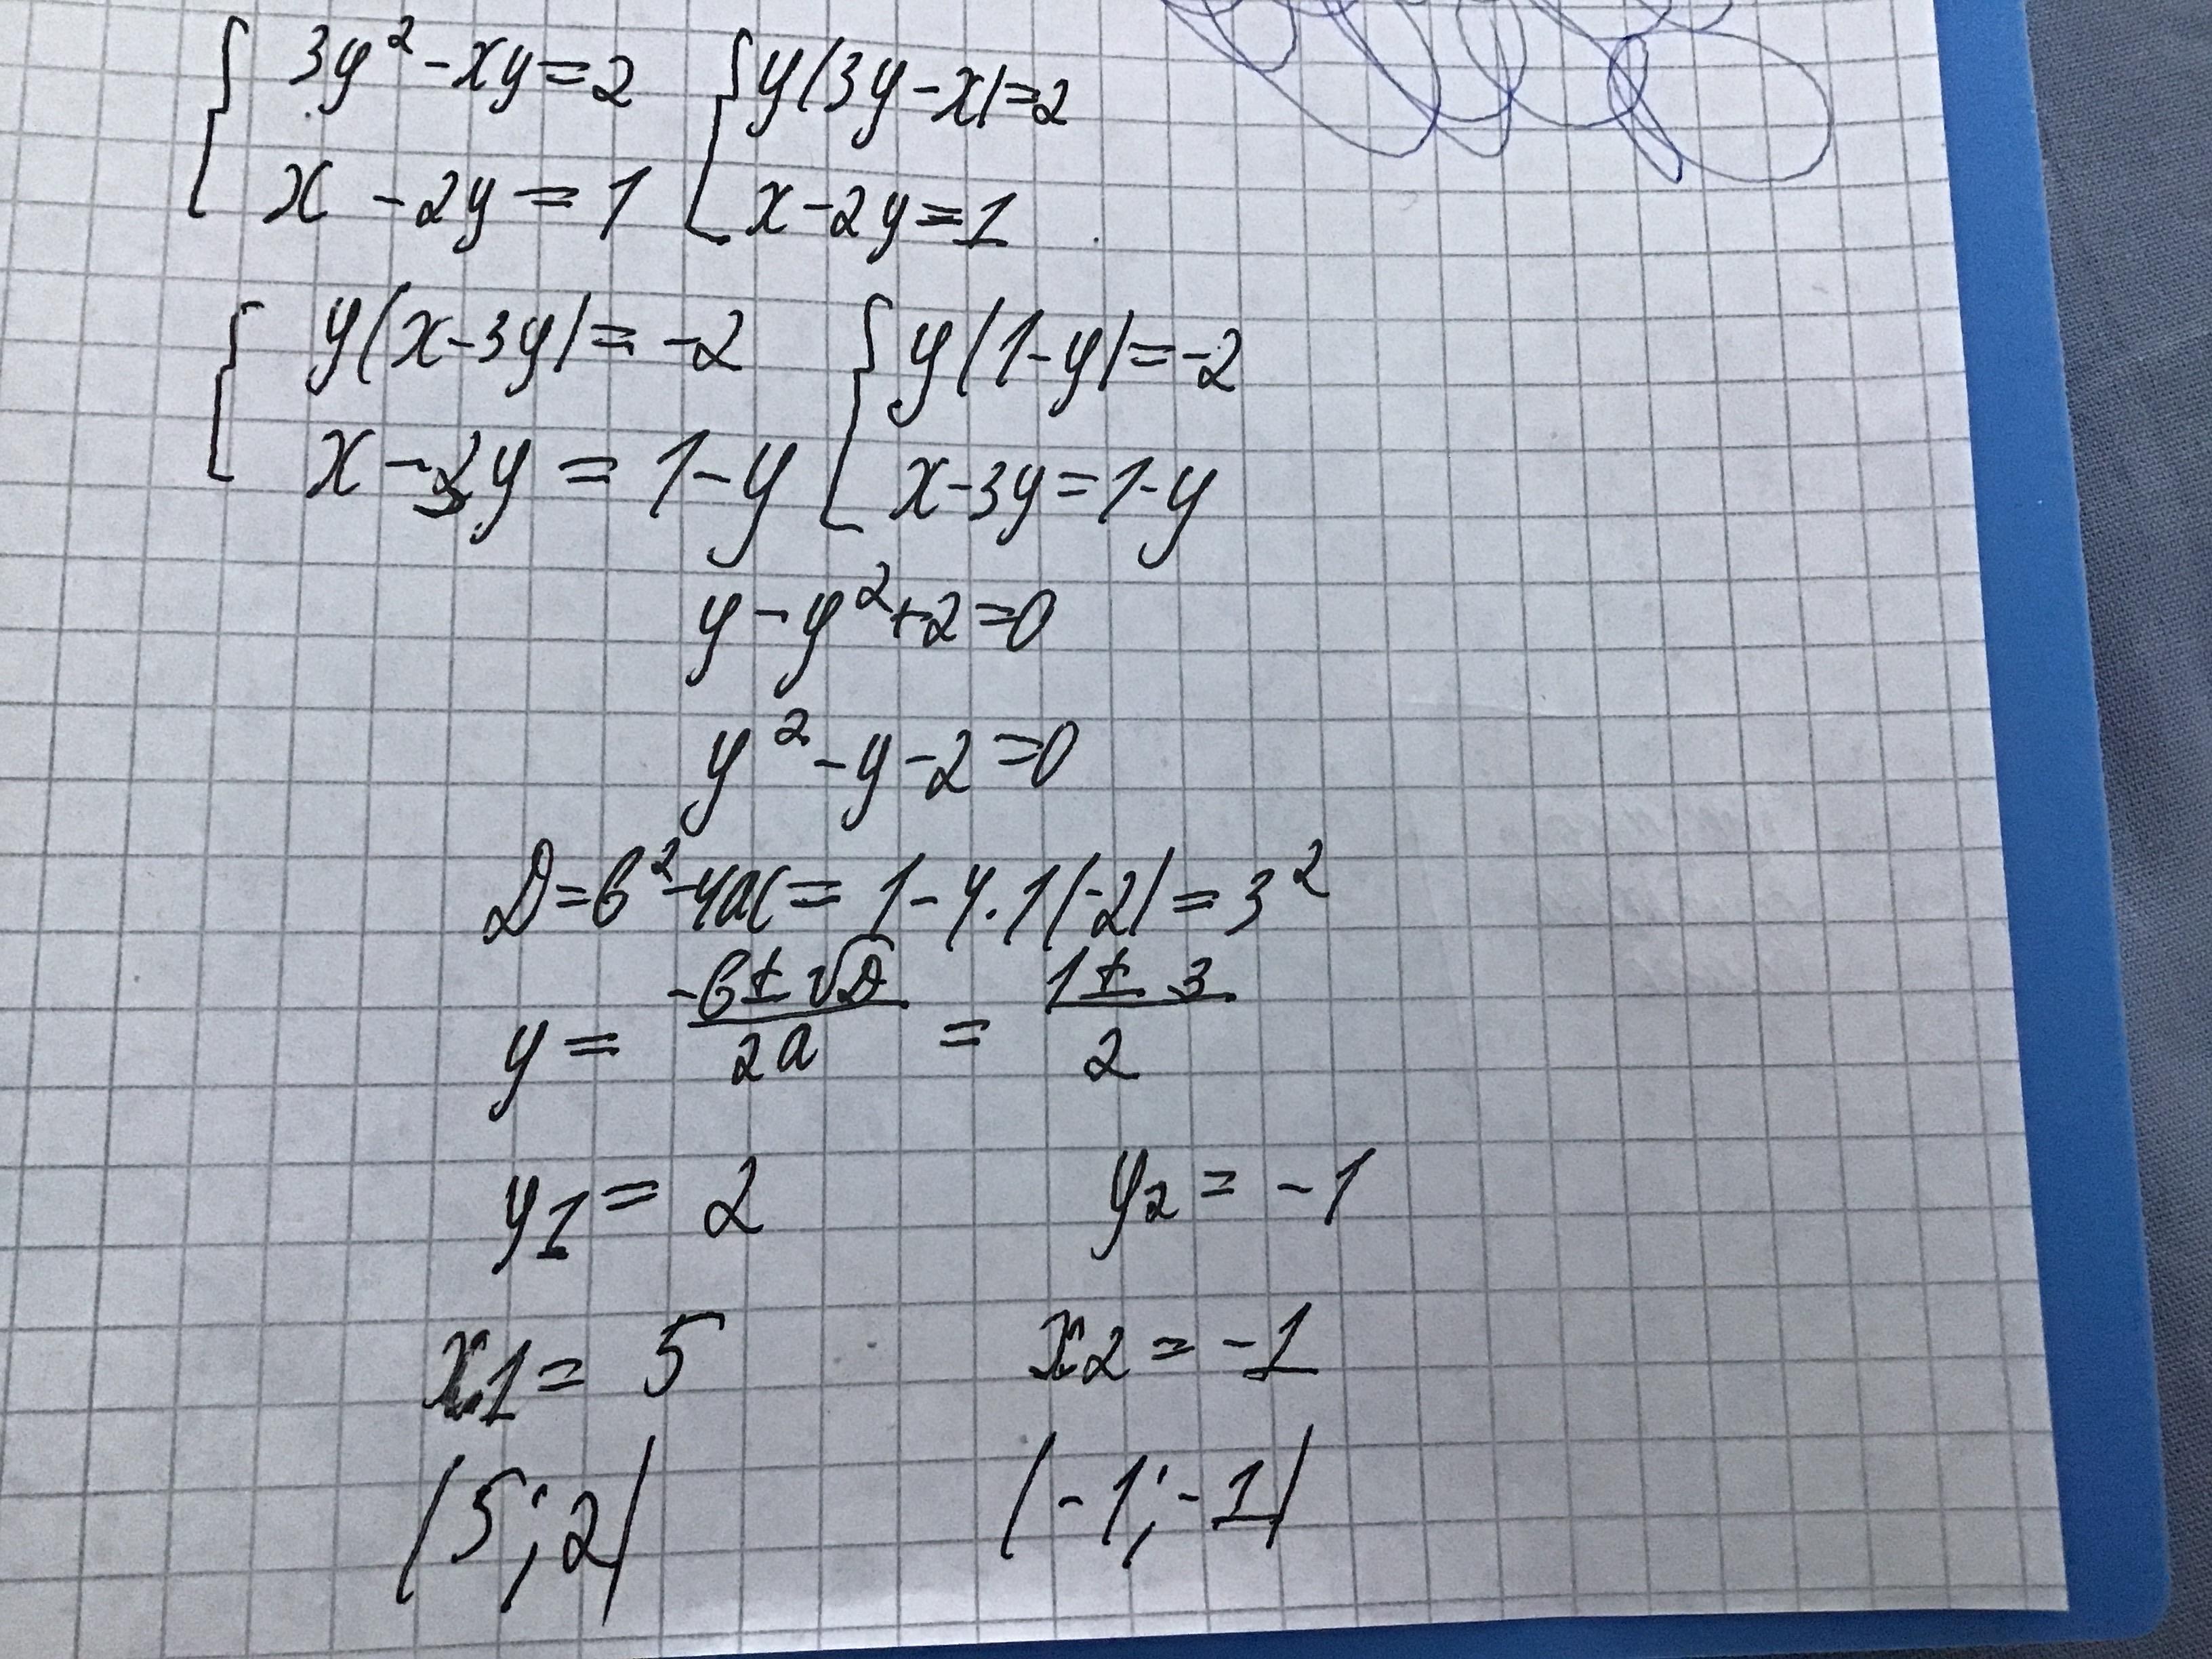 3y² - xy = 2 y(3y - x) = 2
x - 2y = 1 x - 2y = 1
y(x - 3y) = -2 y(1 - y) = -2
x - 3y = 1 - y x - 3y = 1 - y
y - y² + 2 = 0
y² - y - 2 = 0
D = b² - 4ac = 1 - 4 · 1(-2) = 3²
y = (-b ± √D)/(2a) = (1 ± 3)/2
y1 = 2 y2 = -1
x1 = 5 x2 = -1
(5; 2) (-1; -1)